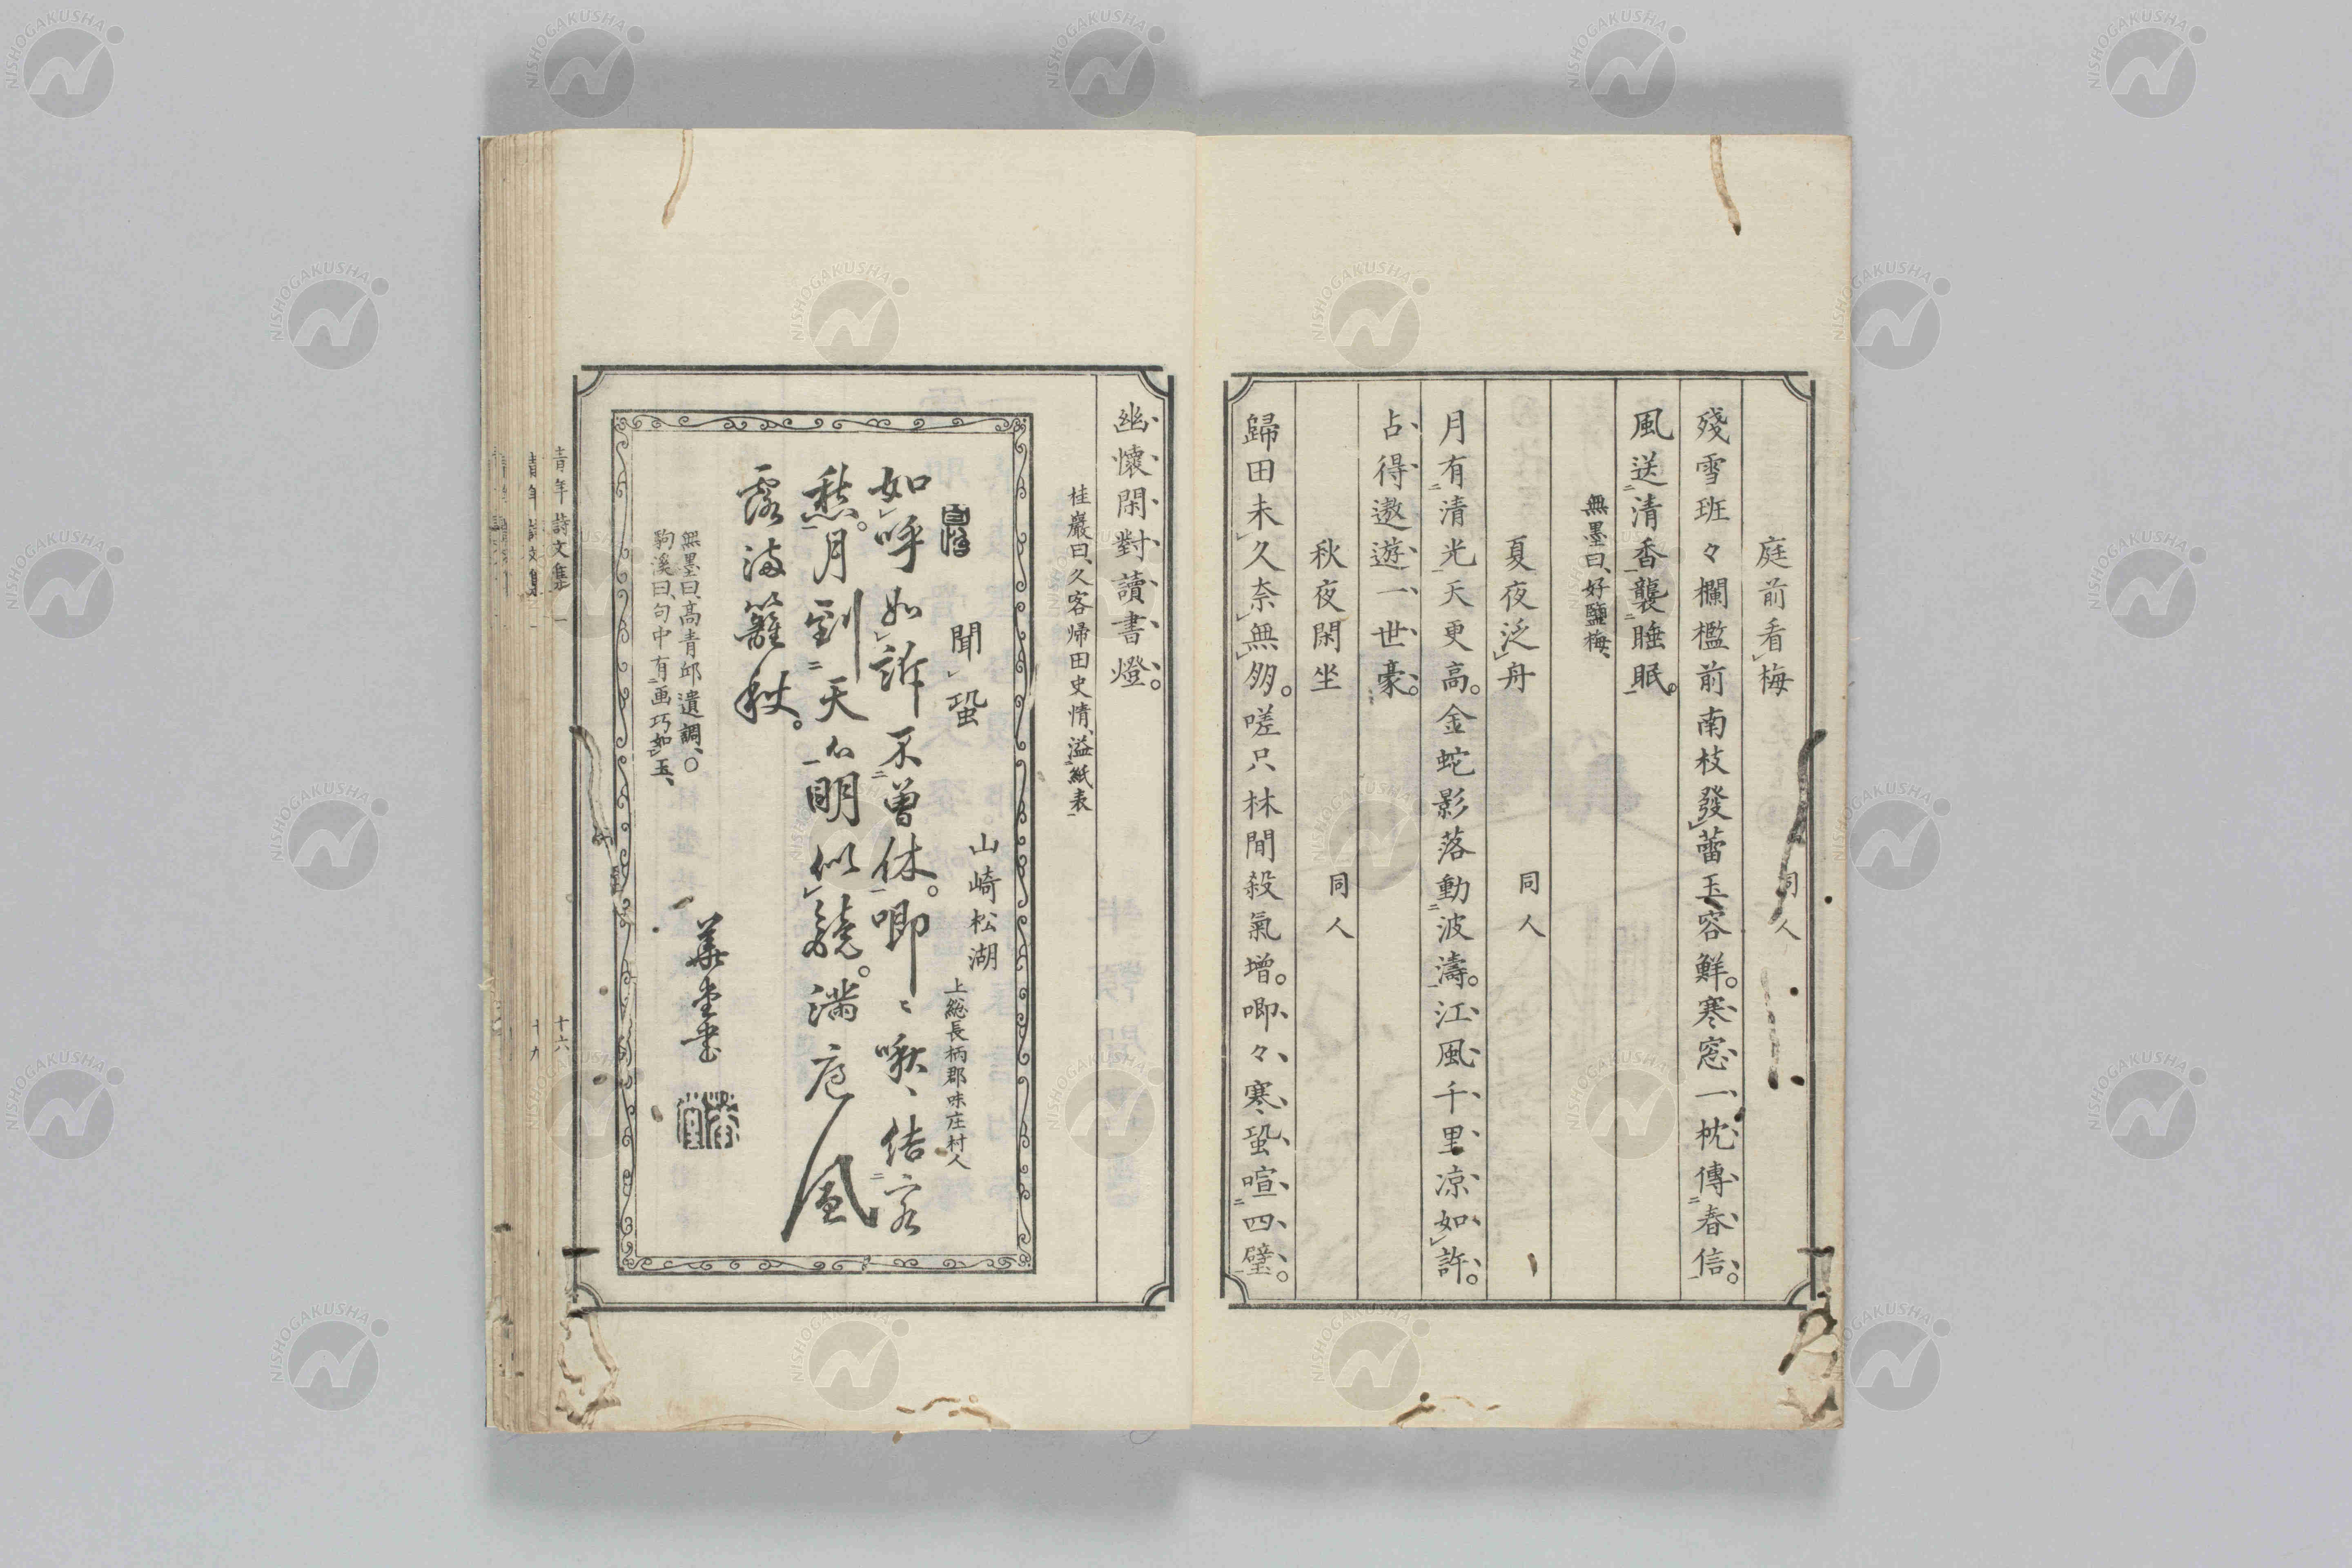 庭前看梅 同人
殘雪班々欄檻前南枝發蕾玉容鮮。寒窓一枕傳春信。
風送清香襲睡眠。
無墨曰、好鹽梅、
夏夜泛舟 同人
月有清光天更高。金蛇影落動波濤。江風千里凉如許。
占得遨遊一世豪。
秋夜閑坐 同人
歸田未久奈無朋。嗟只林間殺氣增。喞々寒蛩喧四壁。
幽懷閑對讀書燈。
桂巖曰、久客帰田史情、溢紙表
聞蛩 山崎松湖 上総長柄郡味庄村人
如呼如訴不曽休。喞〻啾〻結客
愁。月到天心明似鏡。満庭風
露満籬秋。
無墨曰、高青邱遺調、○
駒溪曰、句中有画巧如玉、
華堂書
青年詩文集 十六
NISHOGAKUSHA